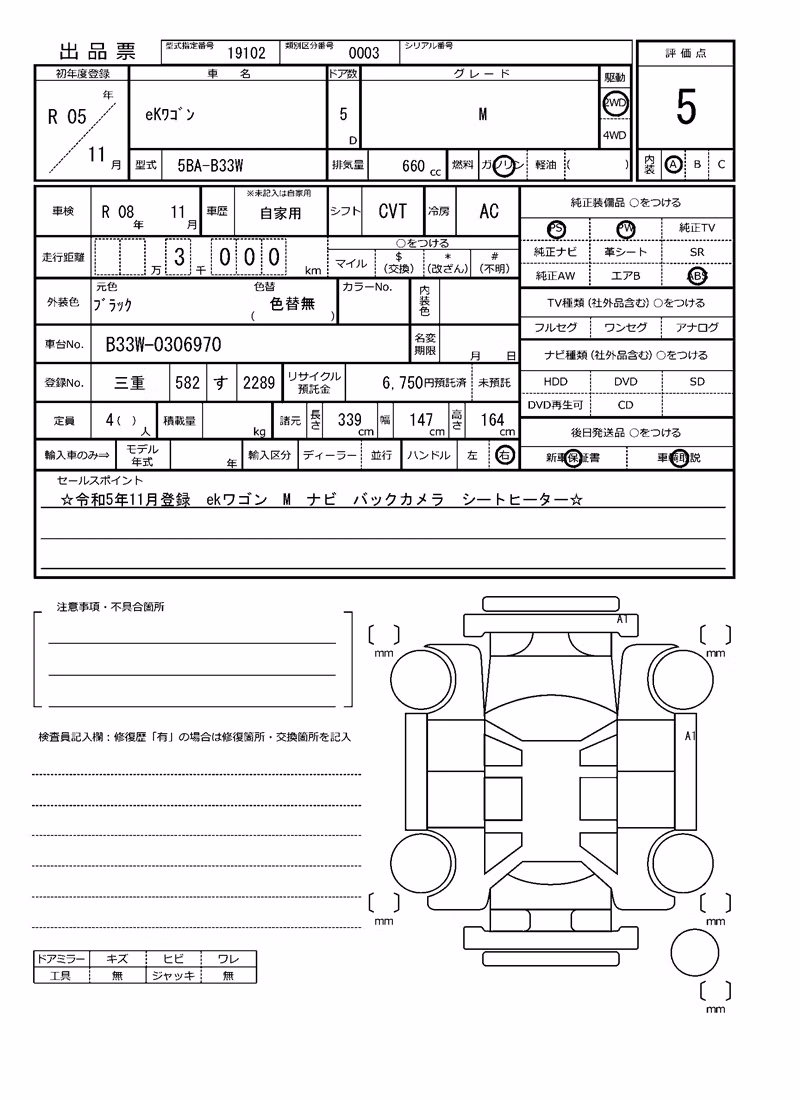 出品票 型式指定番号 19102 類別区分番号 0003 シリアル番号
評価点
5
内装 A B C
初年度登録 車名 ドア数 グレード 駆動
R 05 年 11 月 eKワゴン 5 D M 2WD 4WD
型式 5BA-B33W 排気量 660 cc 燃料 ガソリン 軽油 ( )
※未記入は自家用
車検 R 08 年 11 月 車歴 自家用 シフト CVT 冷房 AC
走行距離 万 3 千 0 0 0 km
○をつける
マイル $(交換) *(改ざん) #(不明)
外装色 元色 ブラック 色替 ( 色替無 ) カラーNo. 内装色
車台No. B33W-0306970 名変期限 月 日
登録No. 三重 582 す 2289 リサイクル預託金 6,750円預託済 未預託
定員 4 ( ) 人 積載量 kg 諸元 長さ 339 cm 幅 147 cm 高さ 164 cm
輸入車のみ⇒ モデル年式 年 輸入区分 ディーラー 並行 ハンドル 左 右
純正装備品 ○をつける
PS PW 純正TV
純正ナビ 革シート SR
純正AW エアB ABS
TV種類(社外品含む)○をつける
フルセグ ワンセグ アナログ
ナビ種類(社外品含む)○をつける
HDD DVD SD
DVD再生可 CD
後日発送品 ○をつける
新車保証書 車輌取説
セールスポイント
☆令和5年11月登録 ekワゴン M ナビ バックカメラ シートヒーター☆
注意事項・不具合箇所
検査員記入欄：修復歴「有」の場合は修復箇所・交換箇所を記入
ドアミラー キズ ヒビ ワレ
工具 無 ジャッキ 無
A1
mm
mm
A1
mm
mm
mm